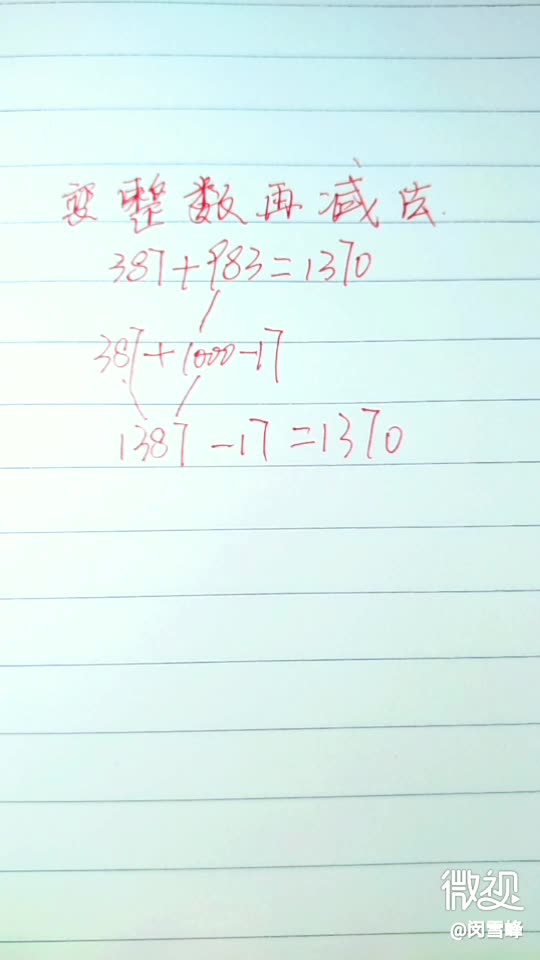 变整数再减法.
387+983=1370
387+1000-17
1387-17=1370
微视
@闵雪峰